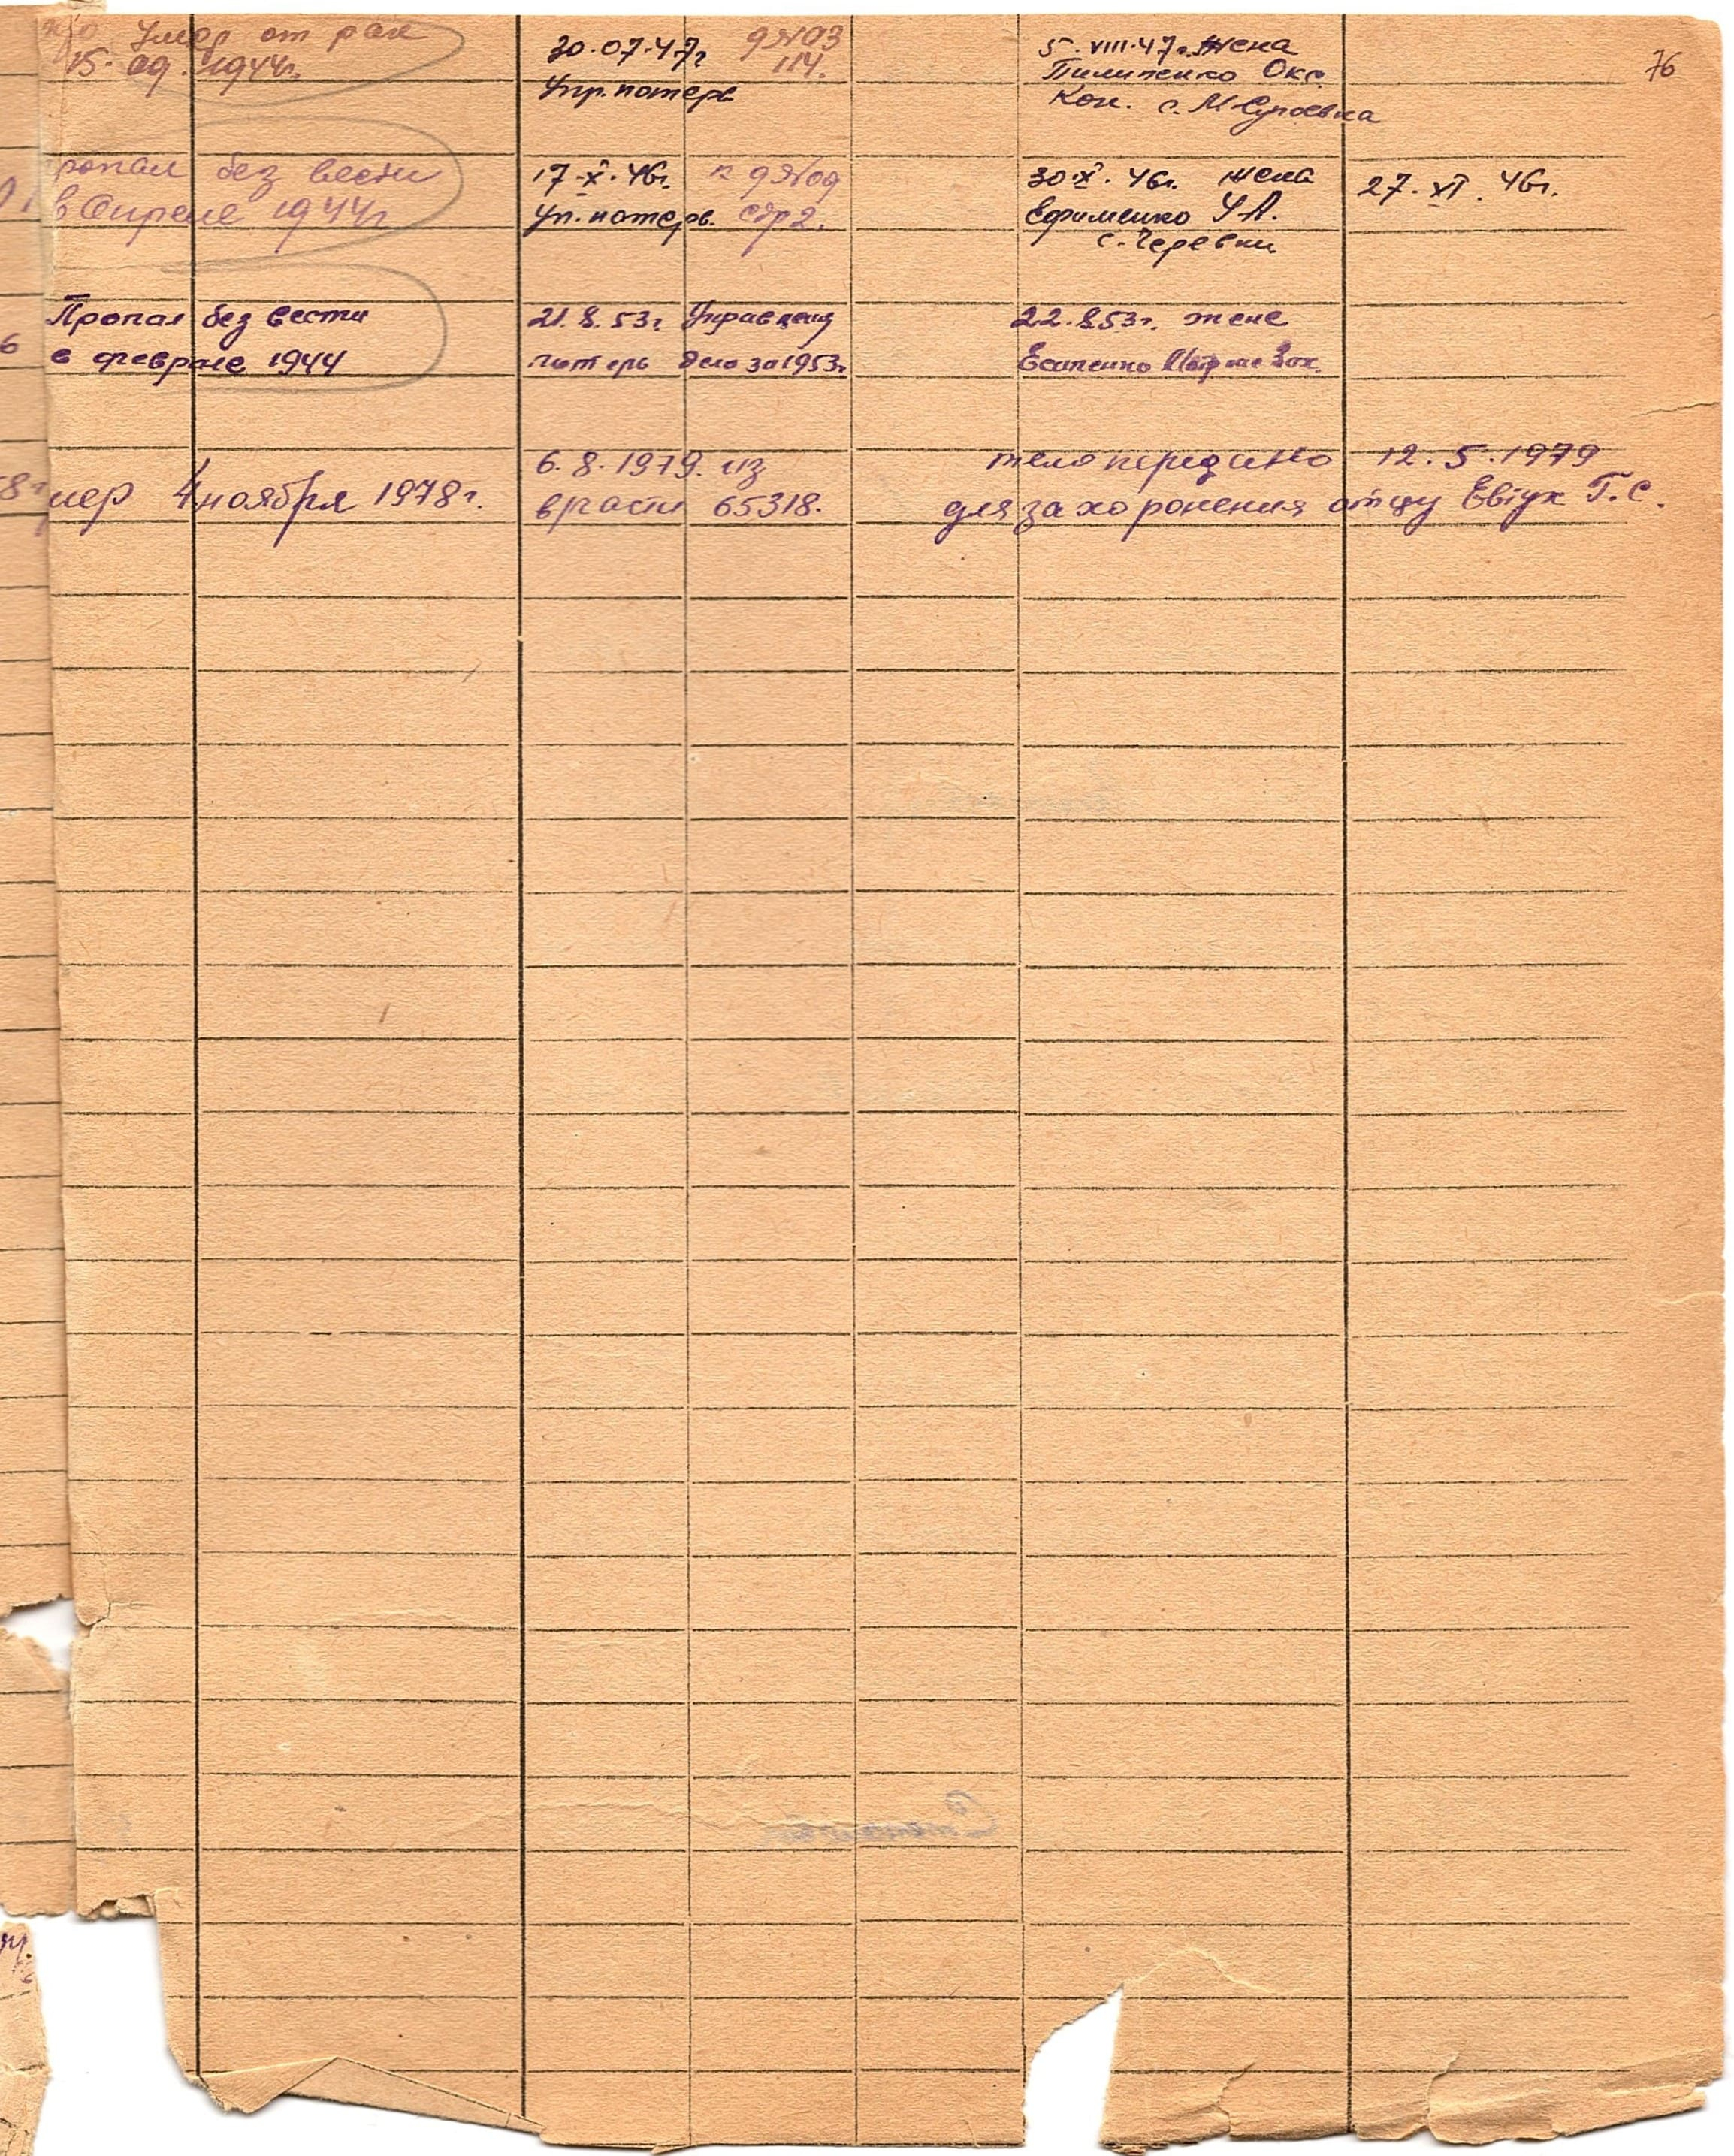 76
умер от ран
15. 09. 1944г.
30.07.47г
Упр. потерь
д №03
114.
5. VIII.47г. жена
Пилипенко Окс.
Кон. с. М Супоевка
пропал без вести
в Апреле 1944г
17.X.46г.
Уп. потерь.
к д №09
стр 2.
30.X.46г. жена
Ефименко У А.
с. Черевки
27. XI. 46г.
Пропал без вести
в феврале 1944
21.8.53г. Управления
потерь дело за 1953г.
22.8.53г. жене
Есипенко Марже Зах.
мер 4 ноября 1978г.
6.8.1979. из
в части 65318.
тело передано 12.5.1979
для захоронения отцу Евтух Г.С.